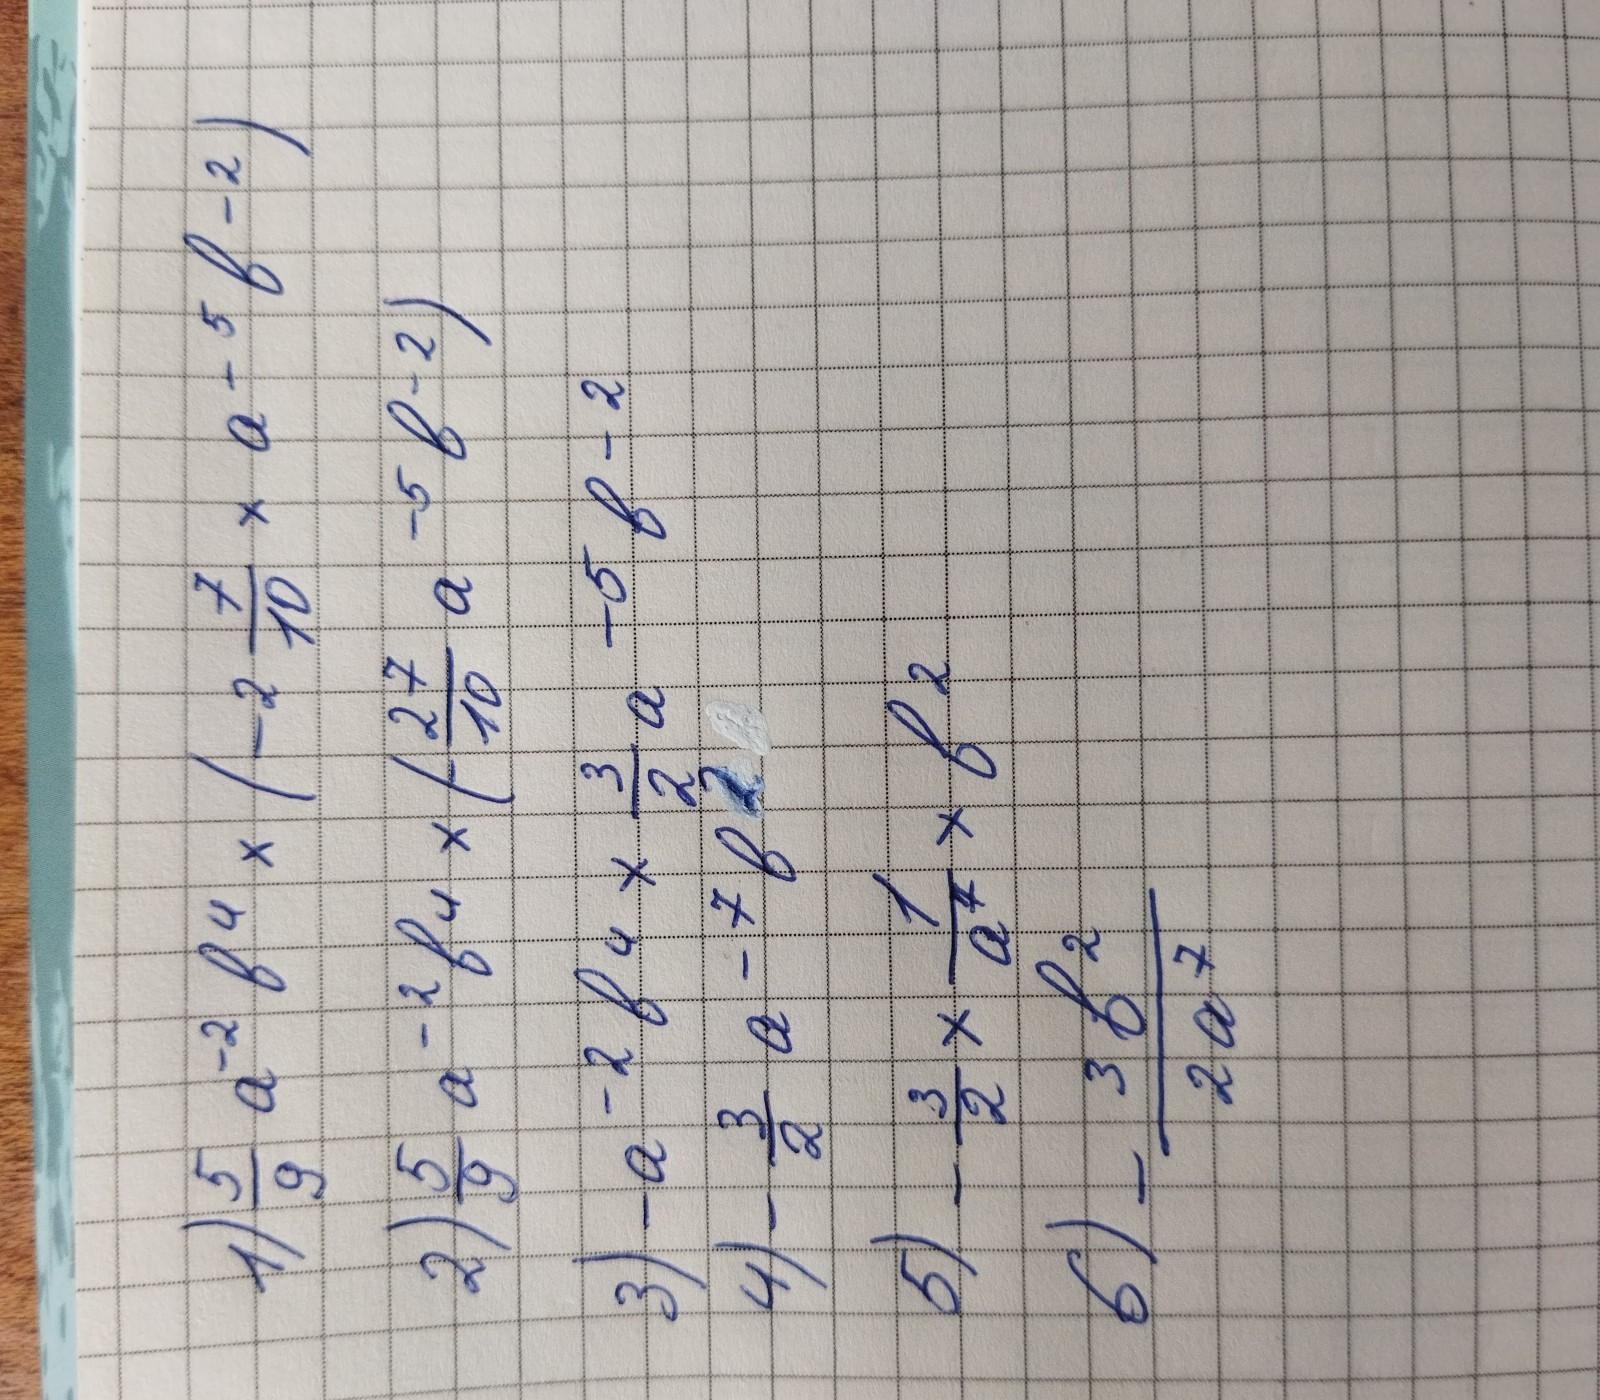 1) 5/9 a⁻² b⁴ × (-2 7/10 × a⁻⁵ b⁻²)
2) 5/9 a⁻² b⁴ × (27/10 a⁻⁵ b⁻²)
3) -a⁻² b⁴ × 3/2 a⁻⁵ b⁻²
4) - 3/2 a⁻⁷ b²
5) - 3/2 × 1/a⁷ × b²
6) - 3b²/2a⁷